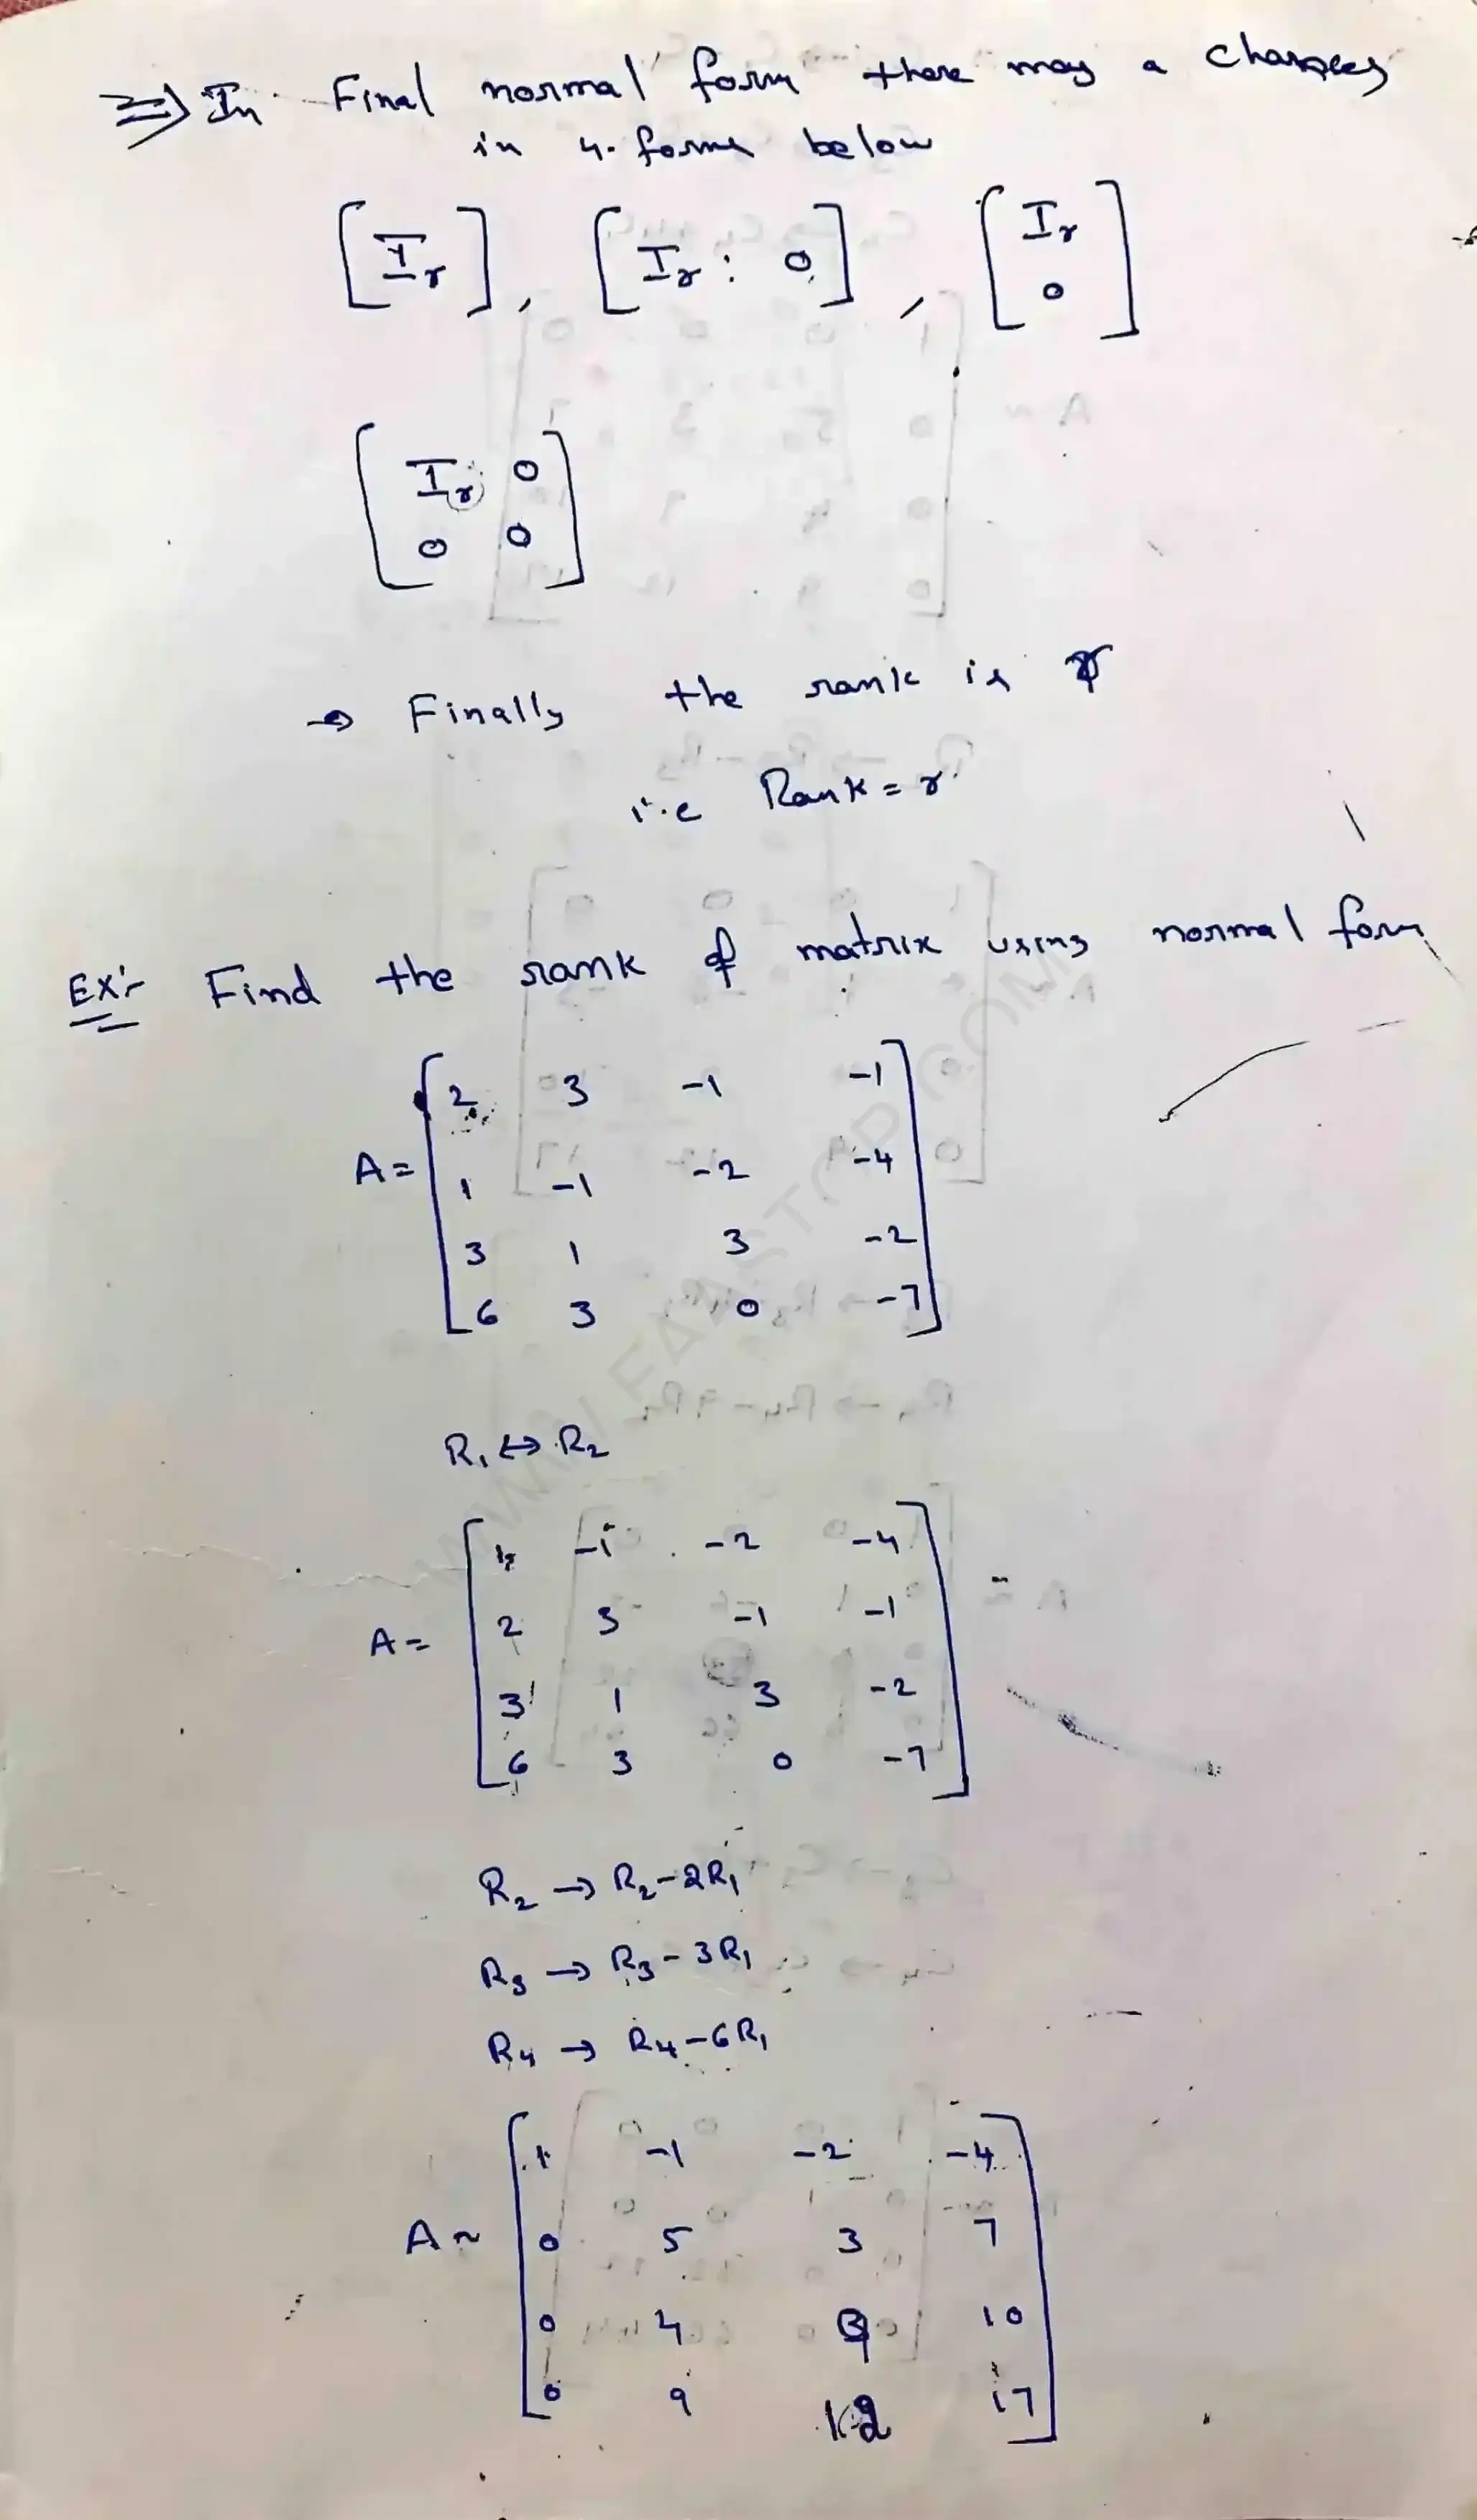 ⇒ In Final normal form there may a changes
in 4. forms below
[Ir], [Ir : 0], [Ir
0]
[Ir 0
0 0]
→ Finally the rank is r
i.e Rank = r.
Ex:- Find the rank of matrix using normal form
A = [2 3 -1 -1
1 -1 -2 -4
3 1 3 -2
6 3 0 -7]
R1 ↔ R2
A = [1 -1 -2 -4
2 3 -1 -1
3 1 3 -2
6 3 0 -7]
R2 → R2-2R1
R3 → R3-3R1
R4 → R4-6R1
A ~ [1 -1 -2 -4
0 5 3 7
0 4 9 10
0 9 12 17]
WWW.FAASTOP.COM